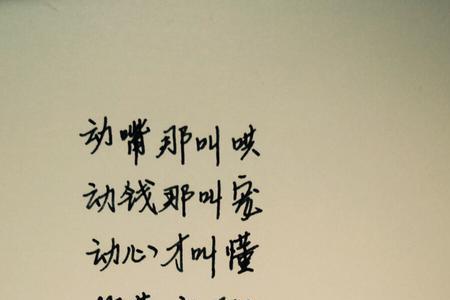 动嘴那叫哄
动钱那叫宠
动心才叫懂